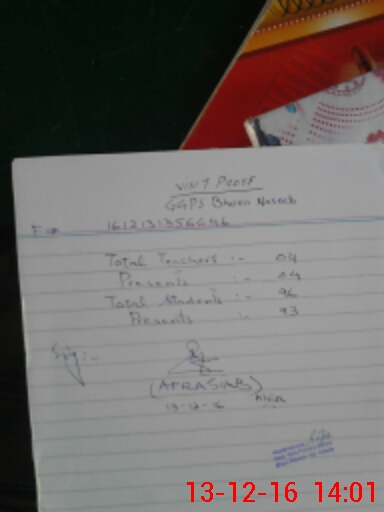 Visit Proof
GGPS
Total Teachers :- 04
Presents :- 04
Total Students :- 96
Presents :- 93
Sig:-
(AFRASIAB)
13-12-16
13-12-16 14:01